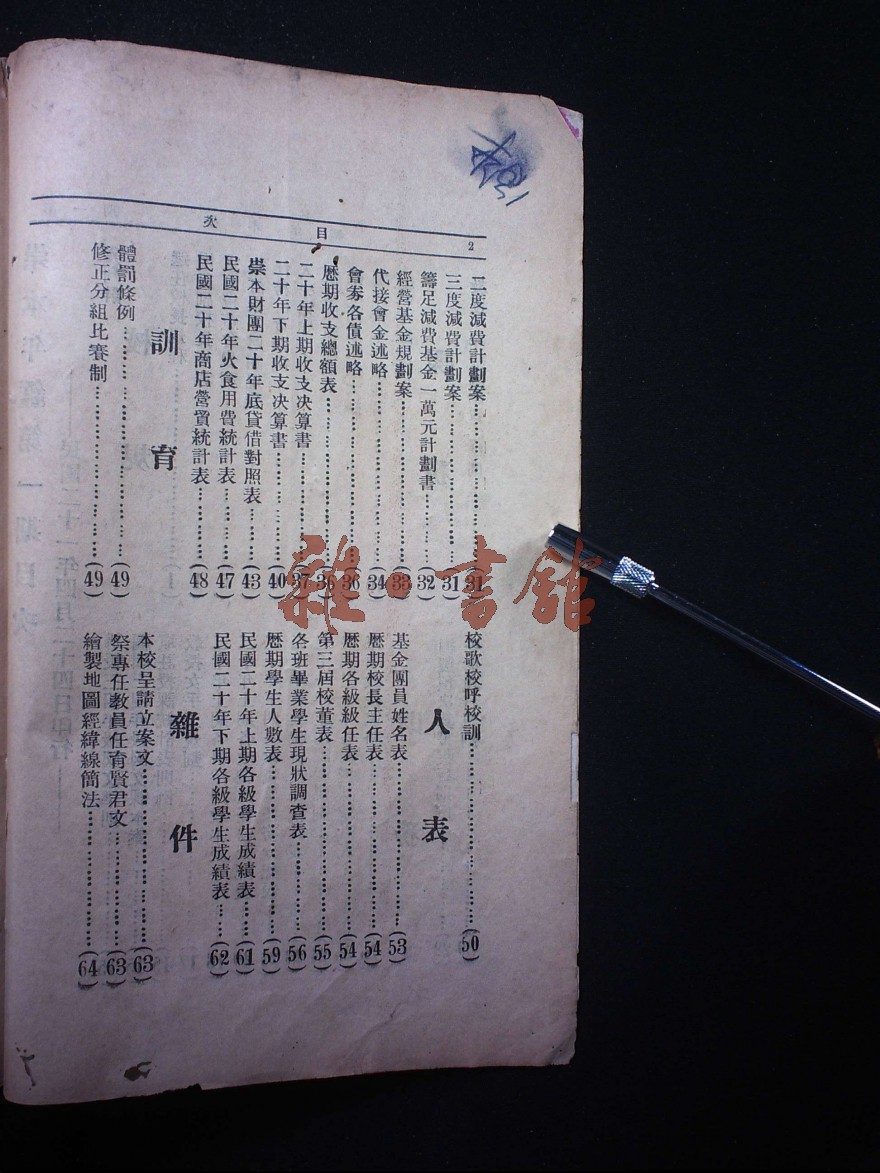 2 目次
二度減費計劃案(31)
三度減費計劃案(31)
籌足減費基金一萬元計劃書(32)
經營基金規劃案(33)
代接會金述略(34)
會券各債述略(36)
歷期收支總額表(36)
二十年上期收支決算書(37)
二十年下期收支決算書(40)
崇本財團二十年底貸借對照表(43)
民國二十年火食用費統計表(47)
民國二十年商店營貿統計表(48)
訓育
體罰條例(49)
修正分組比賽制(49)
校歌校呼校訓(50)
人表
基金團員姓名表(53)
歷期校長主任表(54)
歷期各級級任表(54)
第三屆校董表(55)
各班畢業學生現狀調查表(56)
歷期學生人數表(59)
民國二十年上期各級學生成績表(61)
民國二十年下期各級學生成績表(62)
雜件
本校呈請立案文(63)
祭專任教員任育賢君文(63)
繪製地圖經緯線簡法(64)
雜·書館